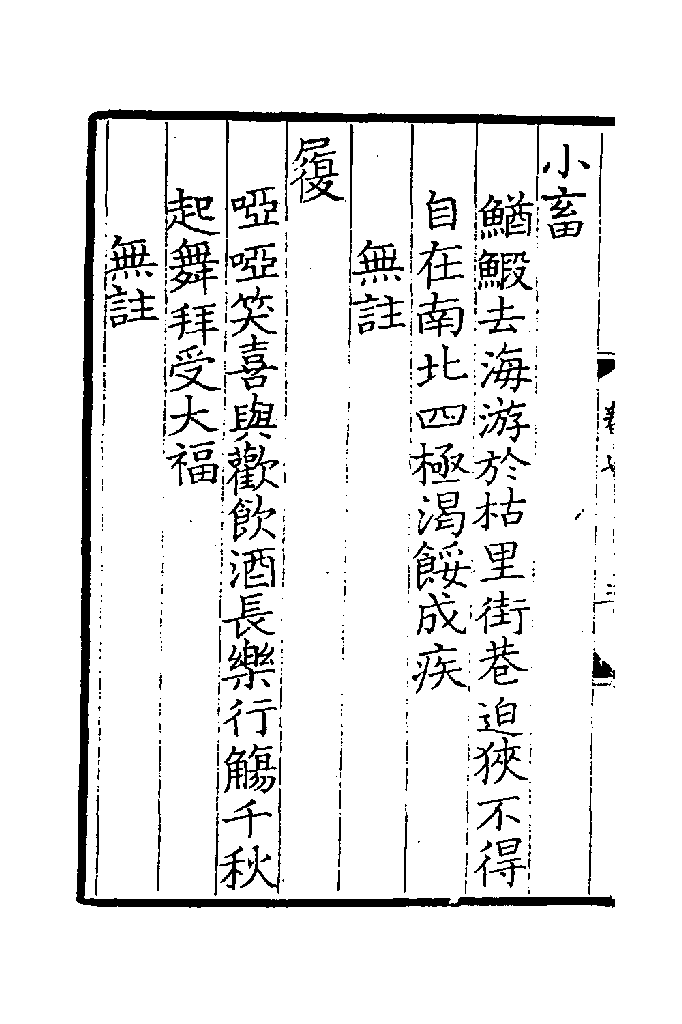 小畜
鰌鰕去海游於枯里街巷迫狹不得
自在南北四極渴餒成疾
無註
履
啞啞笑喜與歡飲酒長樂行觴千秋
起舞拜受大福
無註